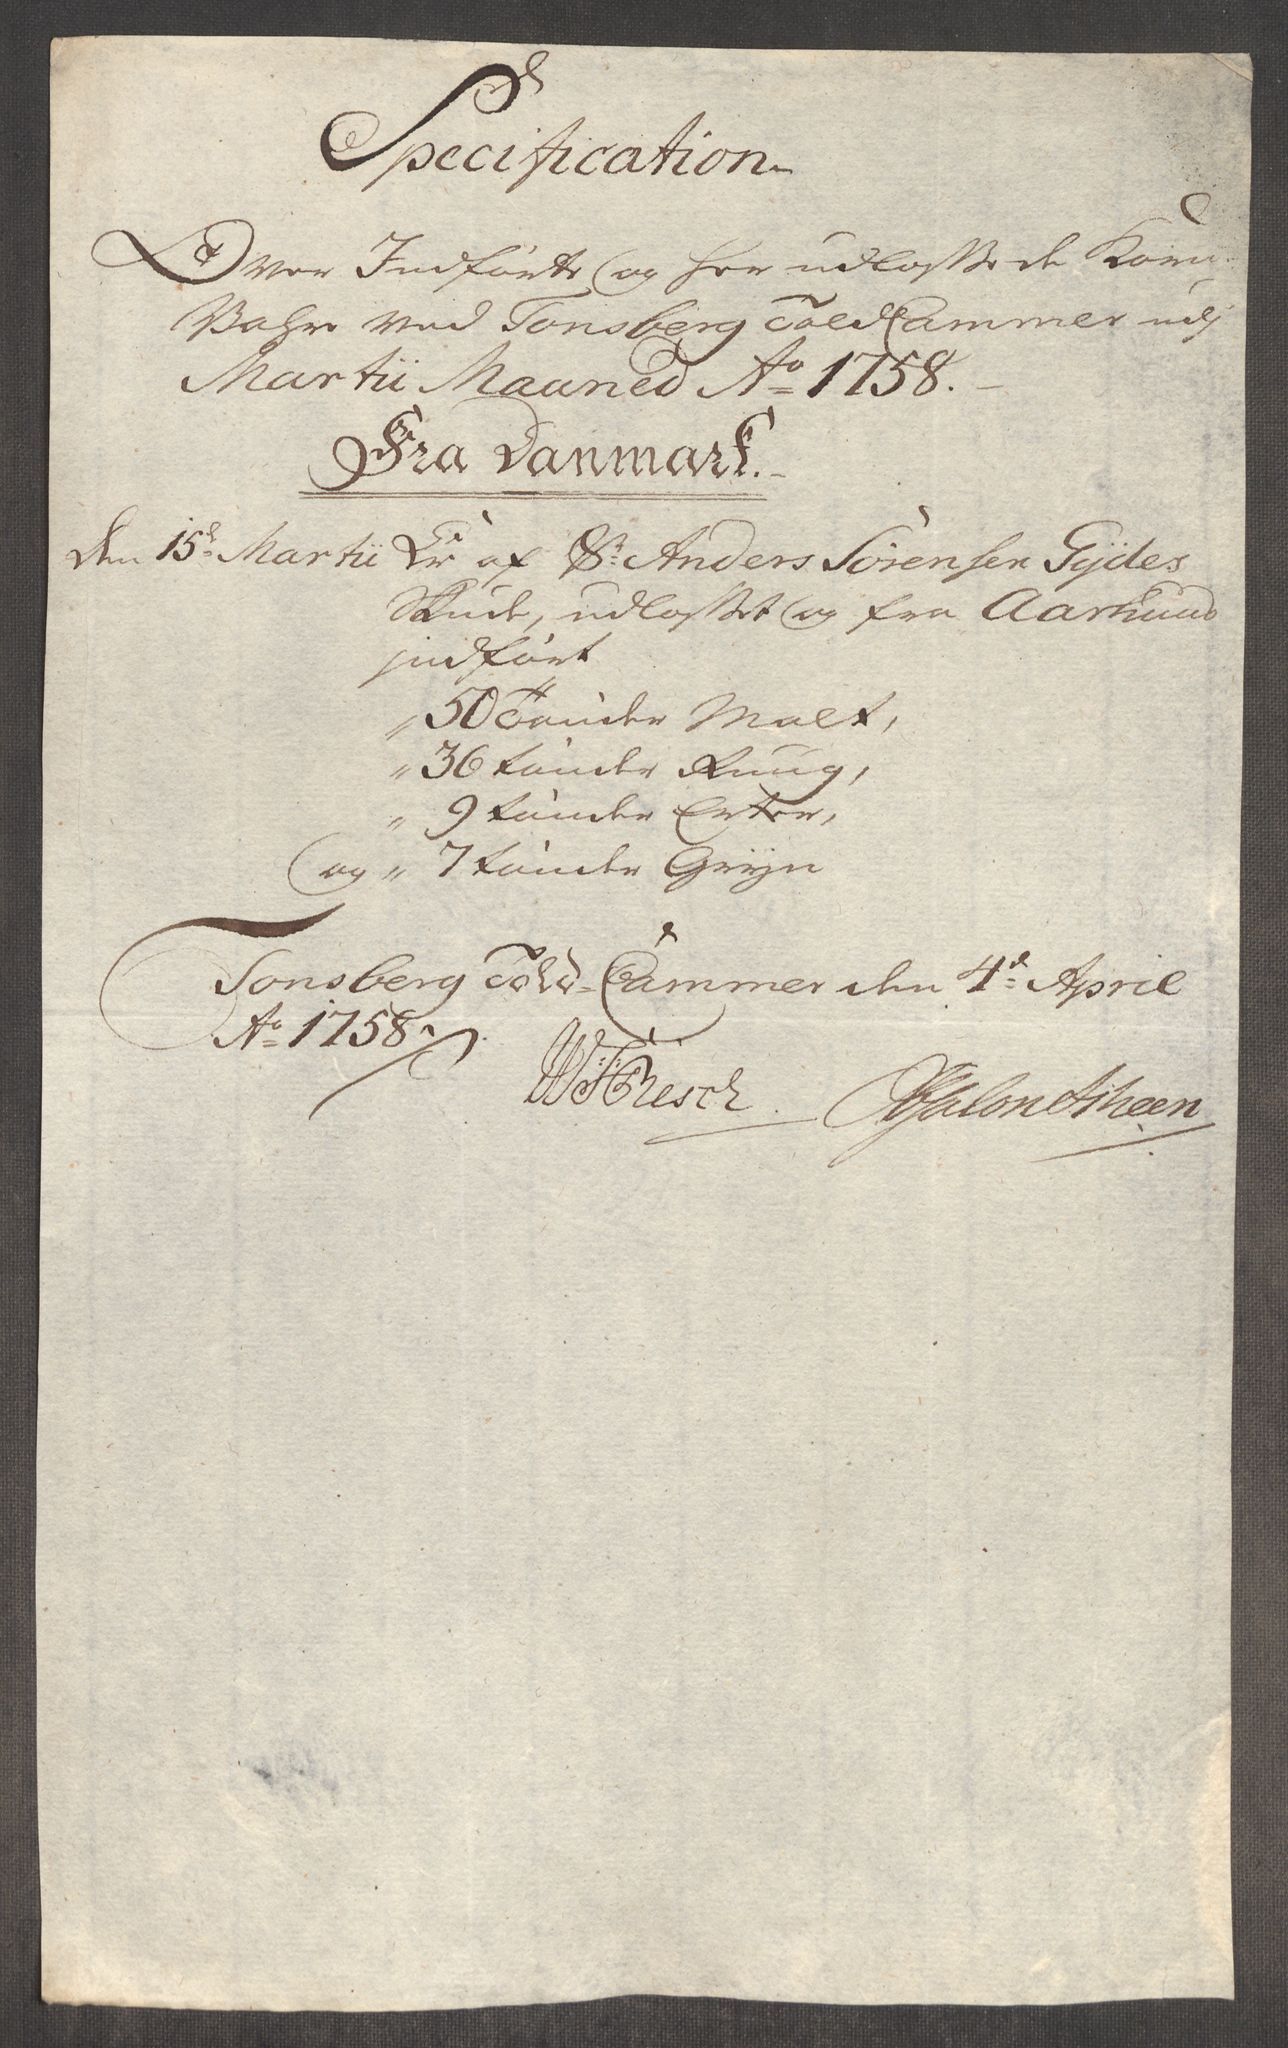 Specification
Over Indførte og her udlossede Korn
Vahre ved Tonsberg Told Cammer udj
Martii Maaned Ao 1758.
Fra Danmark.
Den 15de Martii Er af Sr. Anders Sørensen Gydes
Skude, udlosset og fra Aarhuus
jndført
„ 50 Tønder Malt,
„ 36 tønder Rug,
„ 9 tønder Erter,
og „ 7 tønder Gryn
Tonsberg Told-Cammer den 4de April
Ao 1758.